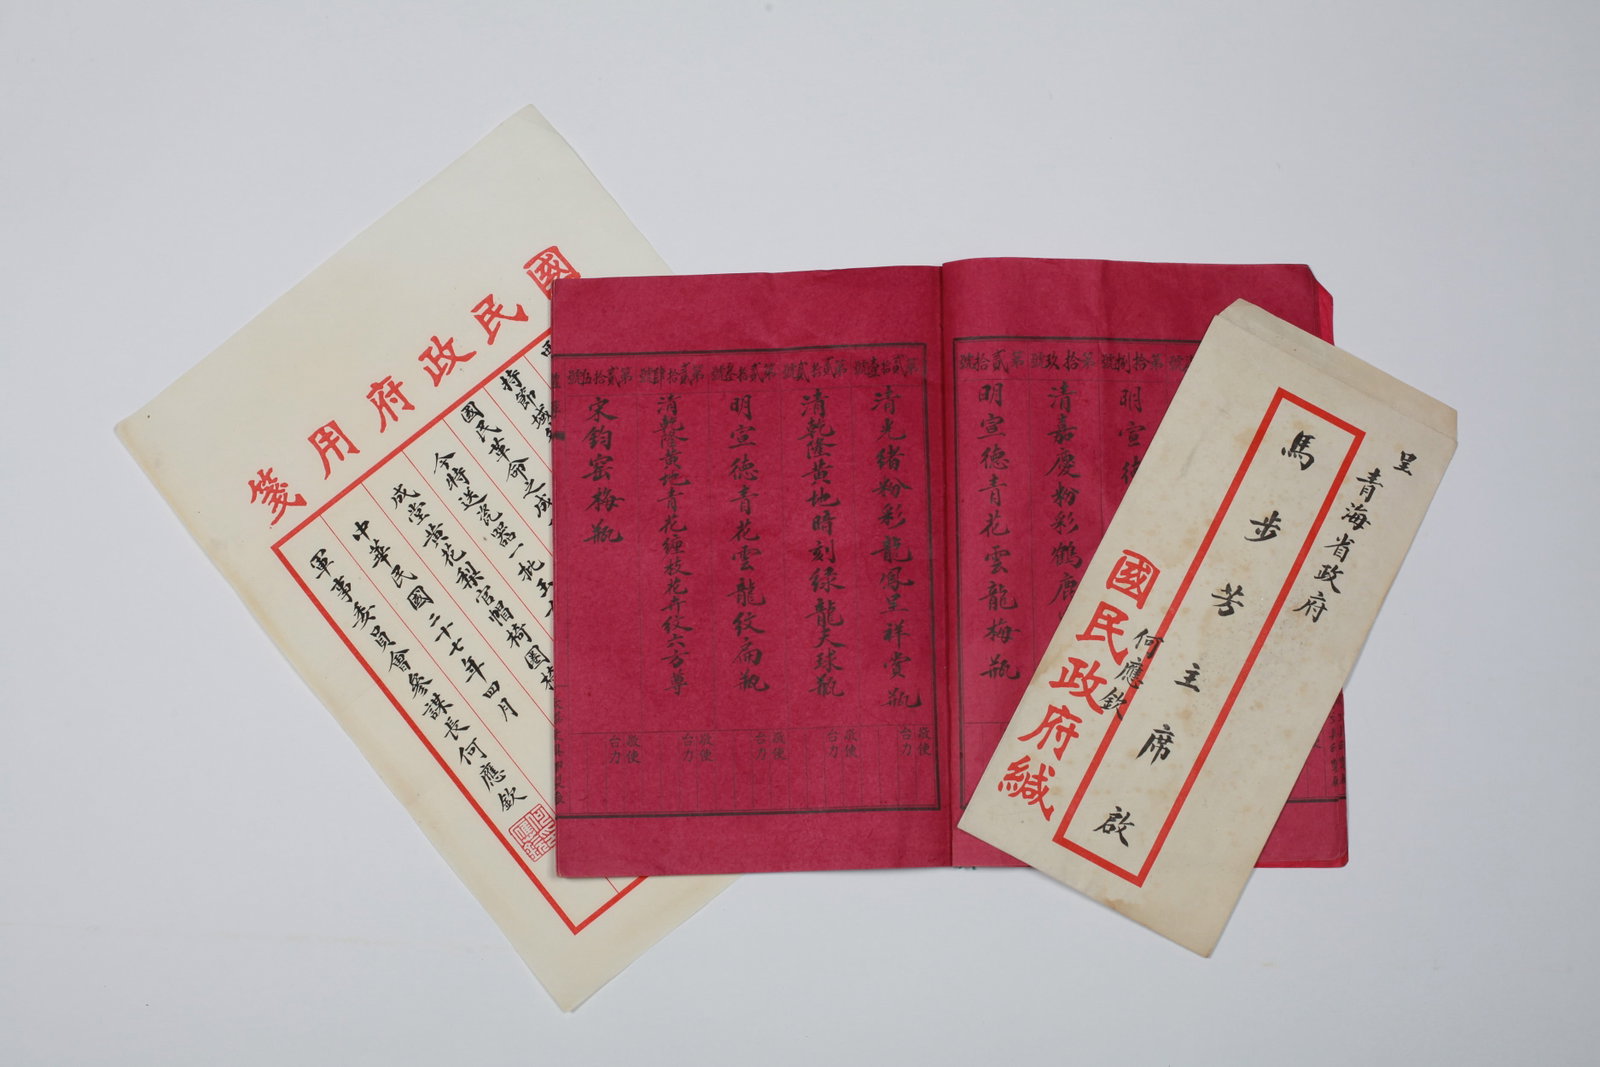 國民政府用箋
持節域
國民革命之成
今特送瓷器一批玉
成堂黄花梨官帽椅圈椅
中華民國二十七年四月
軍事委員會參謀長何應欽
第拾捌號
明宣德
第拾玖號
清嘉慶粉彩鶴鹿
第貳拾號
明宣德青花雲龍梅瓶
第貳拾壹號
清光緒粉彩龍鳳呈祥賞瓶
敬使
台力
第貳拾貳號
清乾隆黄地時刻绿龍天球瓶
敬使
台力
第貳拾叁號
明宣德青花雲龍纹扁瓶
敬使
台力
第貳拾肆號
清乾隆黄地青花缠枝花卉纹六方尊
敬使
台力
第貳拾伍號
宋鈞窑梅瓶
敬使
台力
呈
青海省政府
馬步芳主席啟
何應欽
國民政府緘